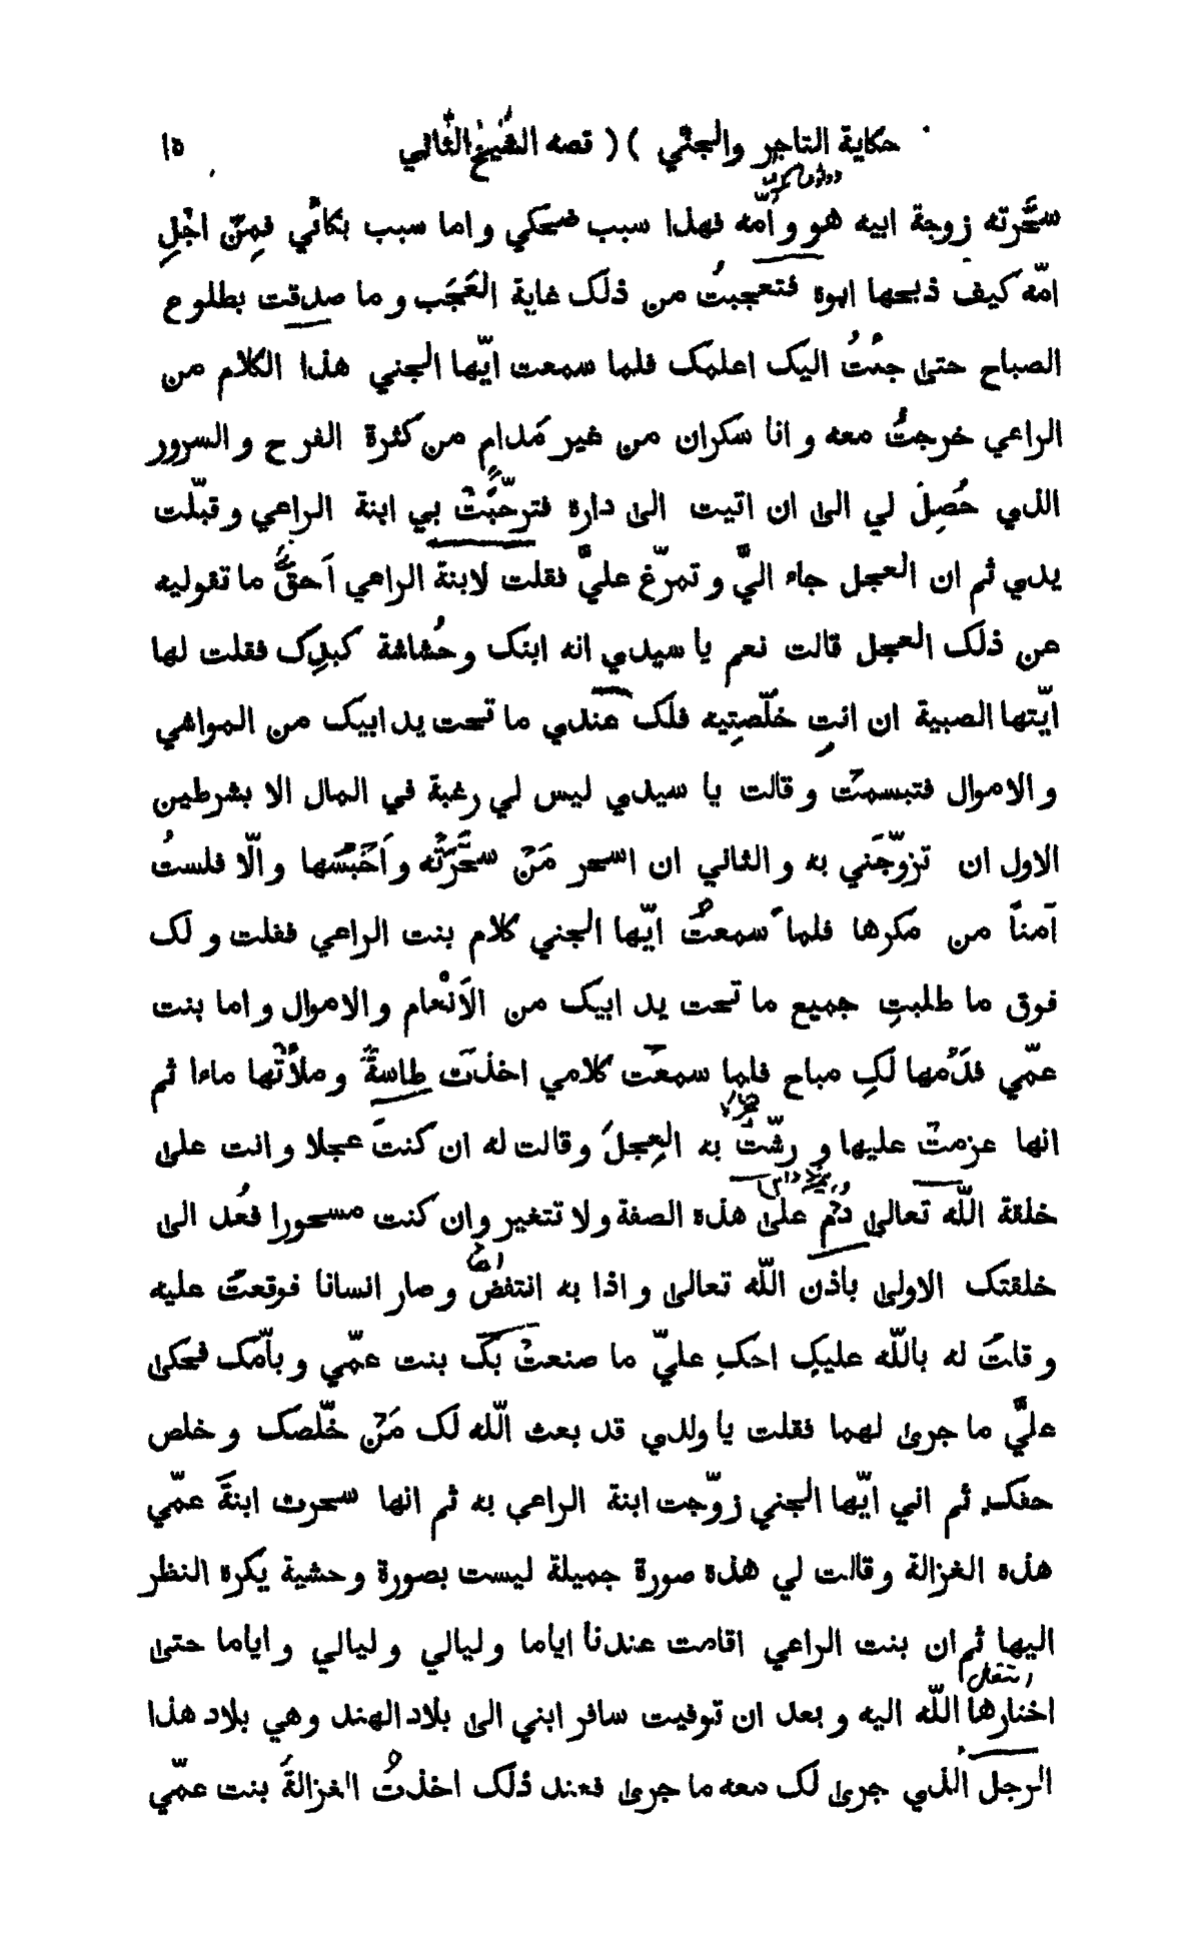 حكاية التاجر والجني )( قصه الشيخ الثاني ١٥
سحَّرته زوجة ابيه هو واُمّه فهذا سبب ضحكي واما سبب بكائي فمِنْ اجْلِ
امّه كيف ذبحها ابوه فتعجبتُ من ذلك غاية العَجَب وما صدقت بطلوع
الصباح حتى جئتُ اليك اعلمك فلما سمعت ايّها الجني هذا الكلام من
الراعي خرجتُ معه وانا سكران من غير مَدامٍ من كثرة الفرح والسرور
الذي حُصِلَ لي الى ان اتيت الى داره فترحّبَتْ بي ابنة الراعي وقبّلت
يدي ثم ان العجل جاء اليَّ وتمرّغ عليَّ فقلت لابنة الراعي اَحقٌّ ما تقوليه
عن ذلك العجل قالت نعم يا سيدي انه ابنك وحُشاشة كبدِك فقلت لها
ايّتها الصبية ان انتِ خلّصتِيه فلك عندي ما تحت يد ابيك من المواشي
والاموال فتبسمتْ وقالت يا سيدي ليس لي رغبة في المال الا بشرطين
الاول ان تزوّجَني به والثاني ان اسحر مَنْ سحَّرَتْه واَحْبُسَها والّا فلستُ
آمناً من مكرها فلما سمعتُ ايّها الجني كلام بنت الراعي فقلت ولك
فوق ما طلبتِ جميع ما تحت يد ابيك من الاَنْعام والاموال واما بنت
عمّي فدَمُها لَكِ مباح فلما سمعَت كلامي اخذَت طاسةً وملأَتْها ماءا ثم
انها عزمتْ عليها ورشّتْ به العِجلَ وقالت له ان كنتَ عجلا وانت على
خلقة اللّه تعالى دُمْ على هذه الصفة ولا تتغير وان كنت مسحورا فعُد الى
خلقتك الاولى باذن اللّه تعالى واذا به انتفضَ وصار انسانا فوقعتُ عليه
وقلتُ له باللّه عليك احكِ عليّ ما صنعتْ بك بنت عمّي وباُمّك فحكى
عليَّ ما جرى لهما فقلت يا ولدي قد بعث اللّه لك مَنْ خلّصك وخلص
حقك ثم اني ايّها الجني زوّجت ابنة الراعي به ثم انها سحرت ابنةَ عمّي
هذه الغزالة وقالت لي هذه صورة جميلة ليست بصورة وحشية يكره النظر
اليها ثم ان بنت الراعي اقامت عندنا اياما وليالي وليالي واياما حتى
انتقال
اختارها اللّه اليه وبعد ان توفيت سافر ابني الى بلاد الهند وهي بلاد هذا
الرجل الذي جرى لك معه ما جرى فعند ذلك اخذتُ الغزالةَ بنت عمّي